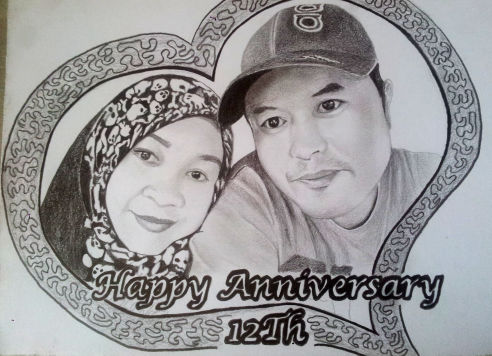 Happy Anniversary
12Th